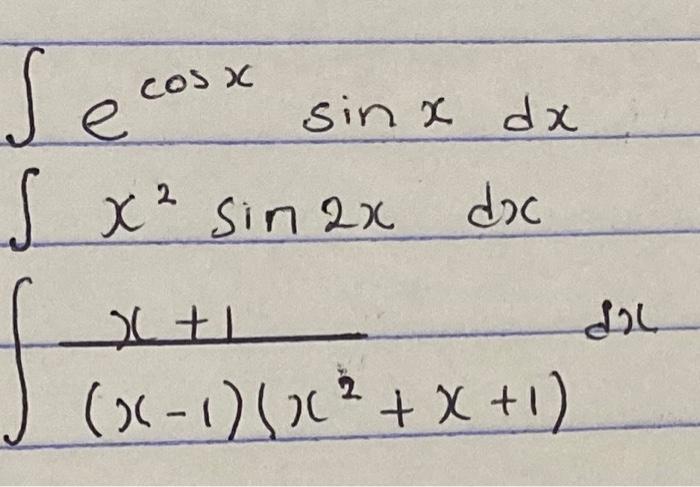 ∫ e^{cos x} sin x dx
∫ x² sin 2x dx
∫ \frac{x+1}{(x-1)(x²+x+1)} dx